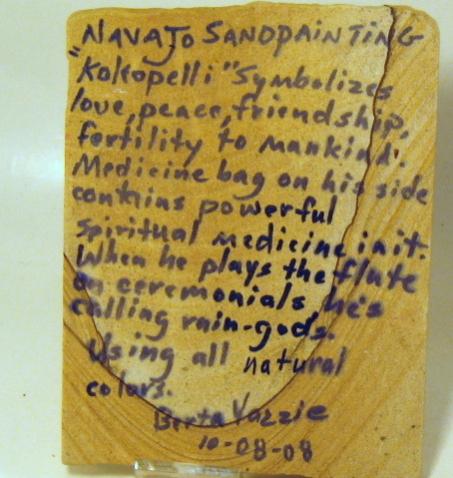 NAVAJO SANDPAINTING
"Kokopelli" Symbolizes
love, peace, friendship,
fertility to mankind.
Medicine bag on his side
contains powerful
spiritual medicine in it.
When he plays the flute
on ceremonials, he's
calling rain-gods.
Using all natural
colors.
Berta Yazzie
10-08-08